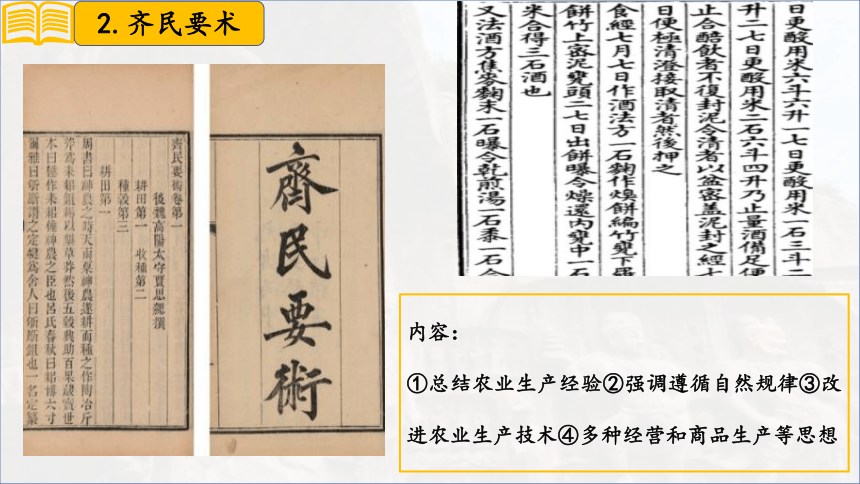 2. 齐民要术
齊民要術卷第一
後魏高陽太守賈思勰撰
耕田第一 收種第二
種穀第三
耕田第一
周書曰神農之時天雨粟神農遂耕而種之作陶冶斤
斧爲耒耜鋤耨以墾草莽然後五穀興助百果藏實世
本曰倕作耒耜倕神農之臣也呂氏春秋曰耜博六寸
爾雅曰斪斸謂之定犍爲舍人曰斪斸鋤也一名定纂
齊民要術
日更酘用米六斗六升一七日更酘用米一石三斗二
升二七日更酘用米二石六斗四升乃止量酒備足便
止合醅飲者不復封泥令清者以盆密蓋泥封之經七
日便極清澄接取清者然後押之
食經七月七日作酒法方一石麴作燠餅編竹甕下羅
餅竹上密泥甕頭二七日出餅曝令燥還內甕中一石
米合得三石酒也
又法酒方焦麥麴末一石曝令乾煎湯一石黍一石合
内容：
①总结农业生产经验②强调遵循自然规律③改
进农业生产技术④多种经营和商品生产等思想